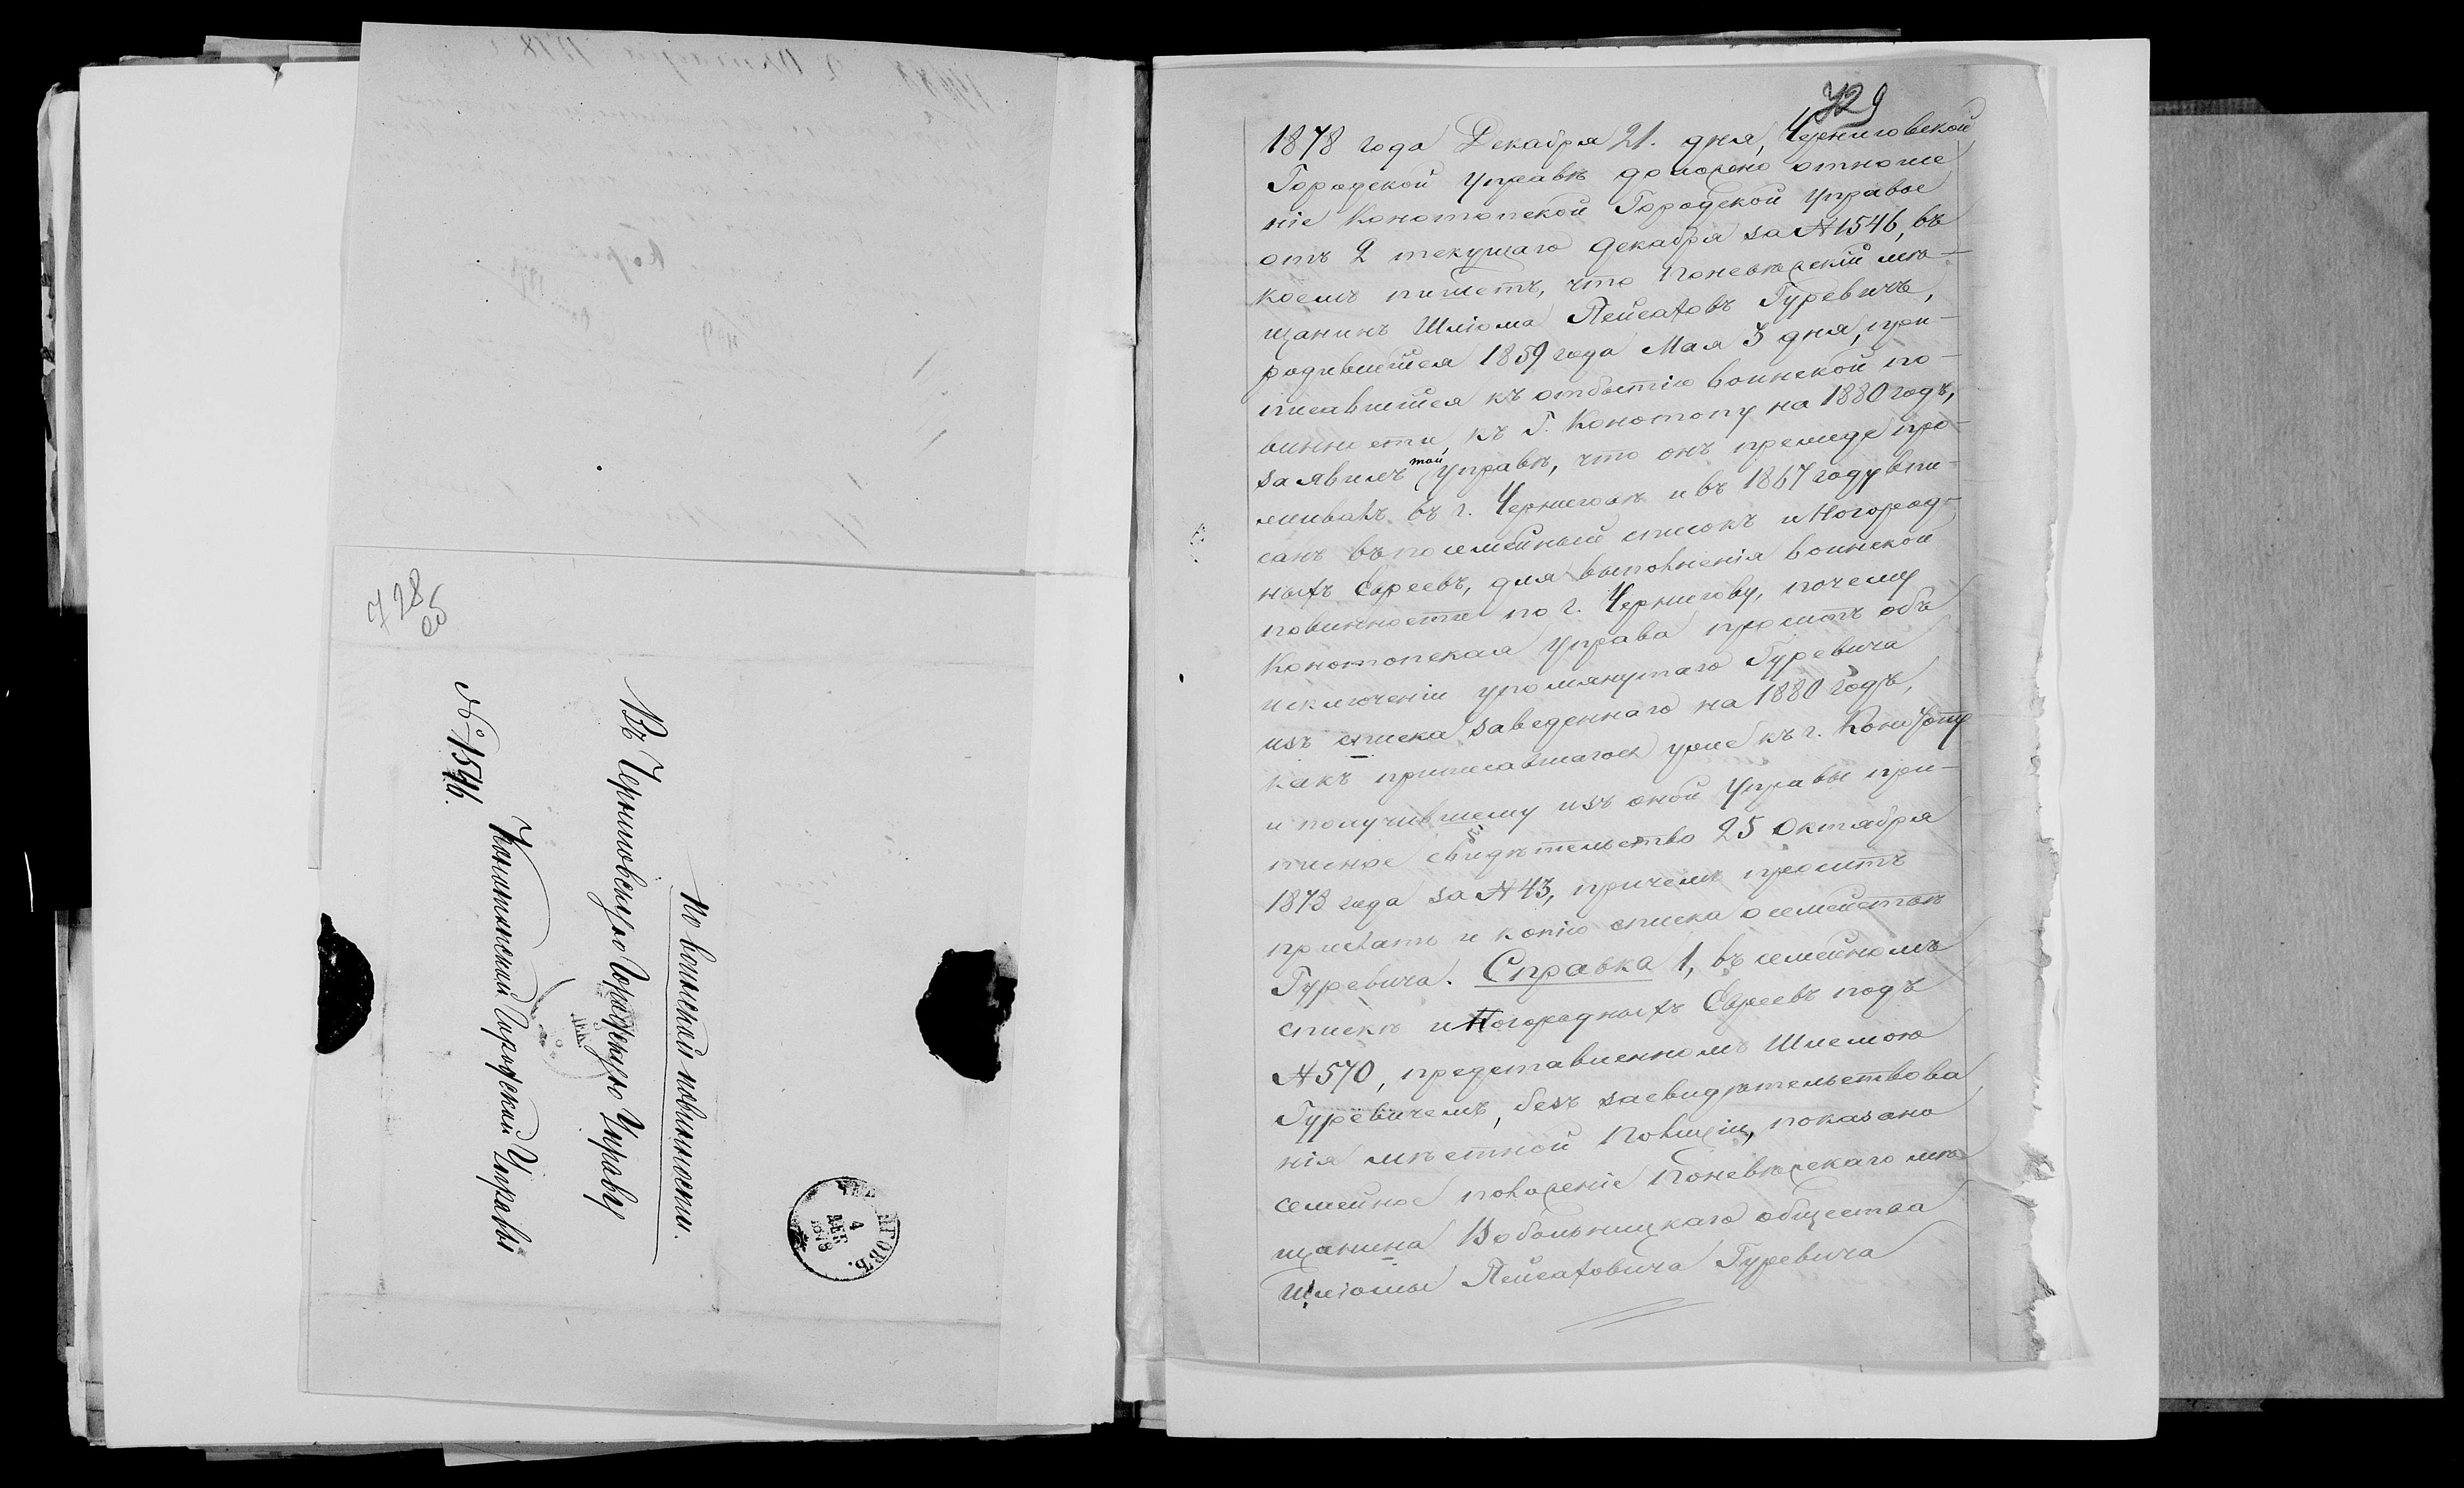 728
об
По воинской повинности.
Въ Черниговскую Городскую Управу
Конотопской Городской Управы
№ 1546.
4
ДЕК
1878
729
1878 года Декабря 21. дня, Черниговской
Городской Управѣ доложено отноше
ніе Конотопской Городской Управы
отъ 2 текущаго Декабря за № 1546, въ
коемъ пишетъ, что Поневѣжскій мѣ-
щанинъ Шліома Пейсаховъ Гуревичъ,
родившійся 1859 года Мая 3 дня, при-
писавшійся къ отбытію воинской по-
винности, къ Г. Конотопу на 1880 годъ,
заявилъ той Управѣ, что онъ прежде про-
живалъ въ г. Черниговѣ и въ 1867 году впи-
санъ въ посемейный списокъ иногород-
ныхъ Евреевъ, для выполненія воинской
повинности по г. Чернигову, почему
Конотопская Управа проситъ объ
исключеніи упомянутаго Гуревича
изъ списка заведеннаго на 1880 годъ,
какъ приписавшагося уже къ г. Конотопу
и получившему изъ оной Управы при-
писное свидѣтельство 25 Октября
1878 года за № 43, причемъ проситъ
прислать и копію списка о семействѣ
Гуревича. Справка 1, въ семейномъ
спискѣ иногородныхъ Евреевъ подъ
№ 570, представленномъ Шлемою
Гуревичемъ, безъ засвидѣтельствова
нія мѣстной Полиціи, показано
семейное положеніе Поневѣжскаго мѣ
щанина Вобольницкаго общества
Шліомы Пейсаховича Гуревича